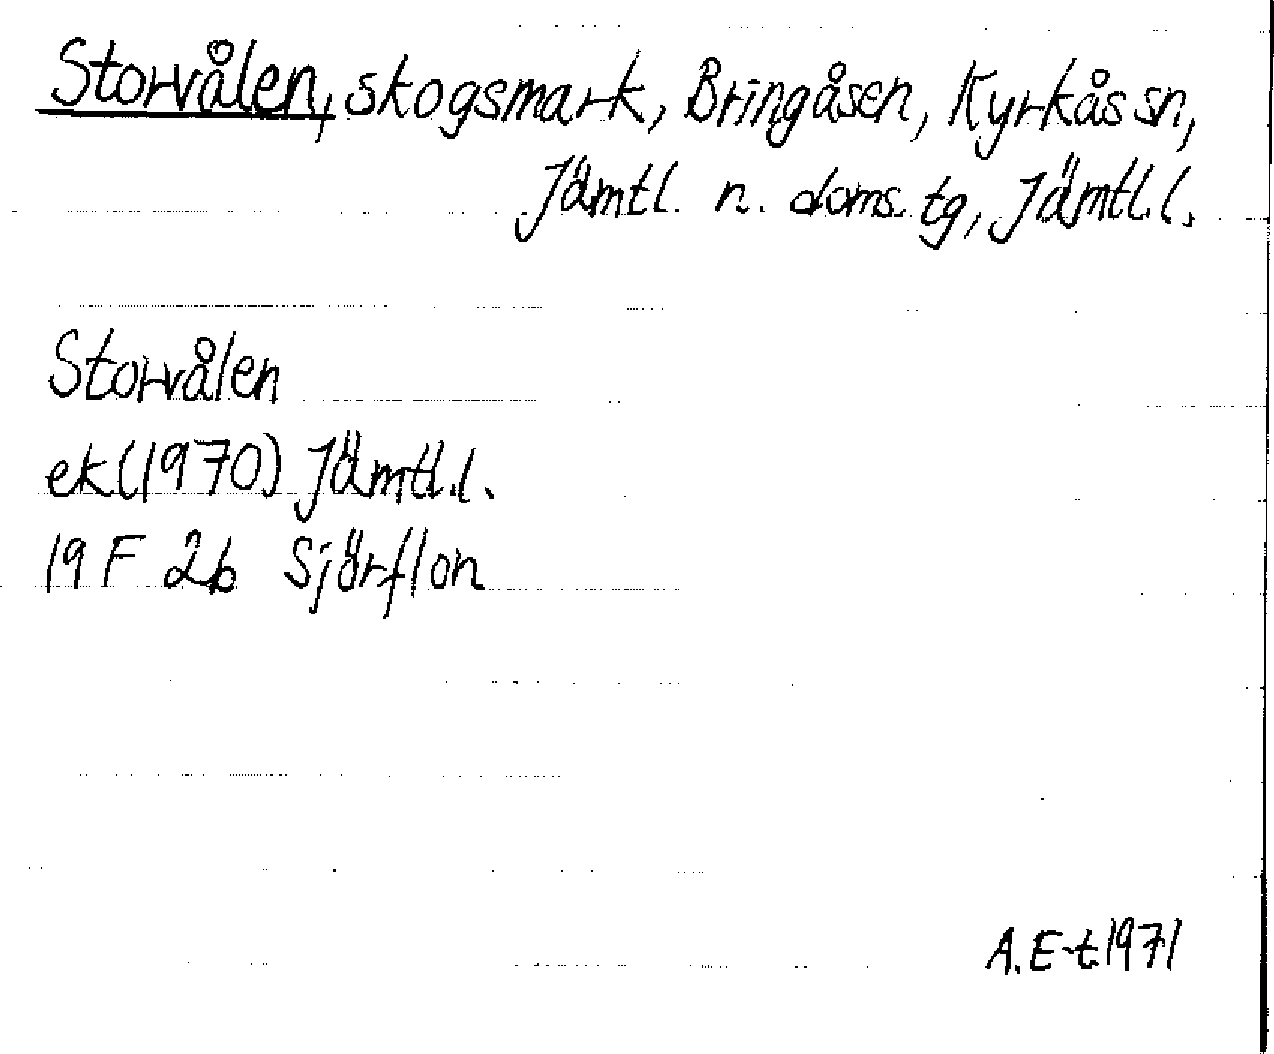 Storvålen, skogsmark, Bringåsen, Kyrkås sn,
Jämtl. n. doms. tg, Jämtl.l.
Storvålen
ek(1970) Jämtl.l.
19 F 2b Sjörflon
A.E-t 1971